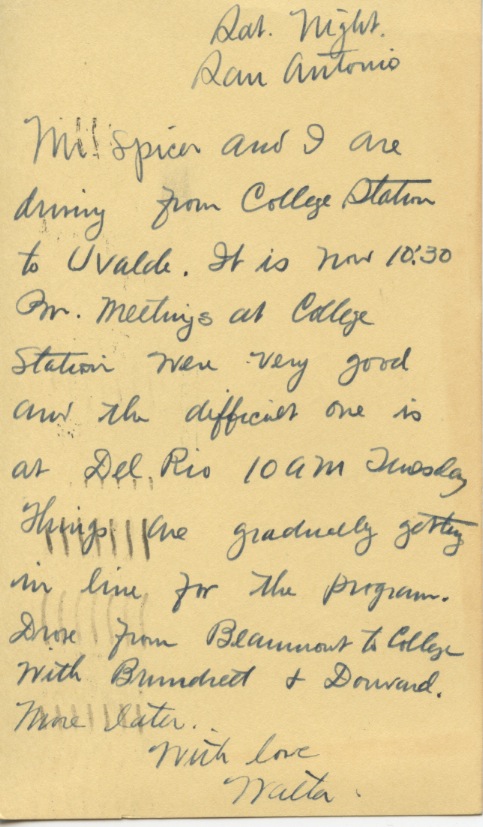 Sat. Night.
San Antonio
Mr. Spicer and I are
driving from College Station
to Uvalde. It is now 10:30
Pm. Meetings at College
Station were very good
and the difficult one is
at Del Rio 10 am Tuesday
Things are gradually getting
in line for the program.
Drove from Beaumont to College
with Brundrett &
More later.
With love
Walter.